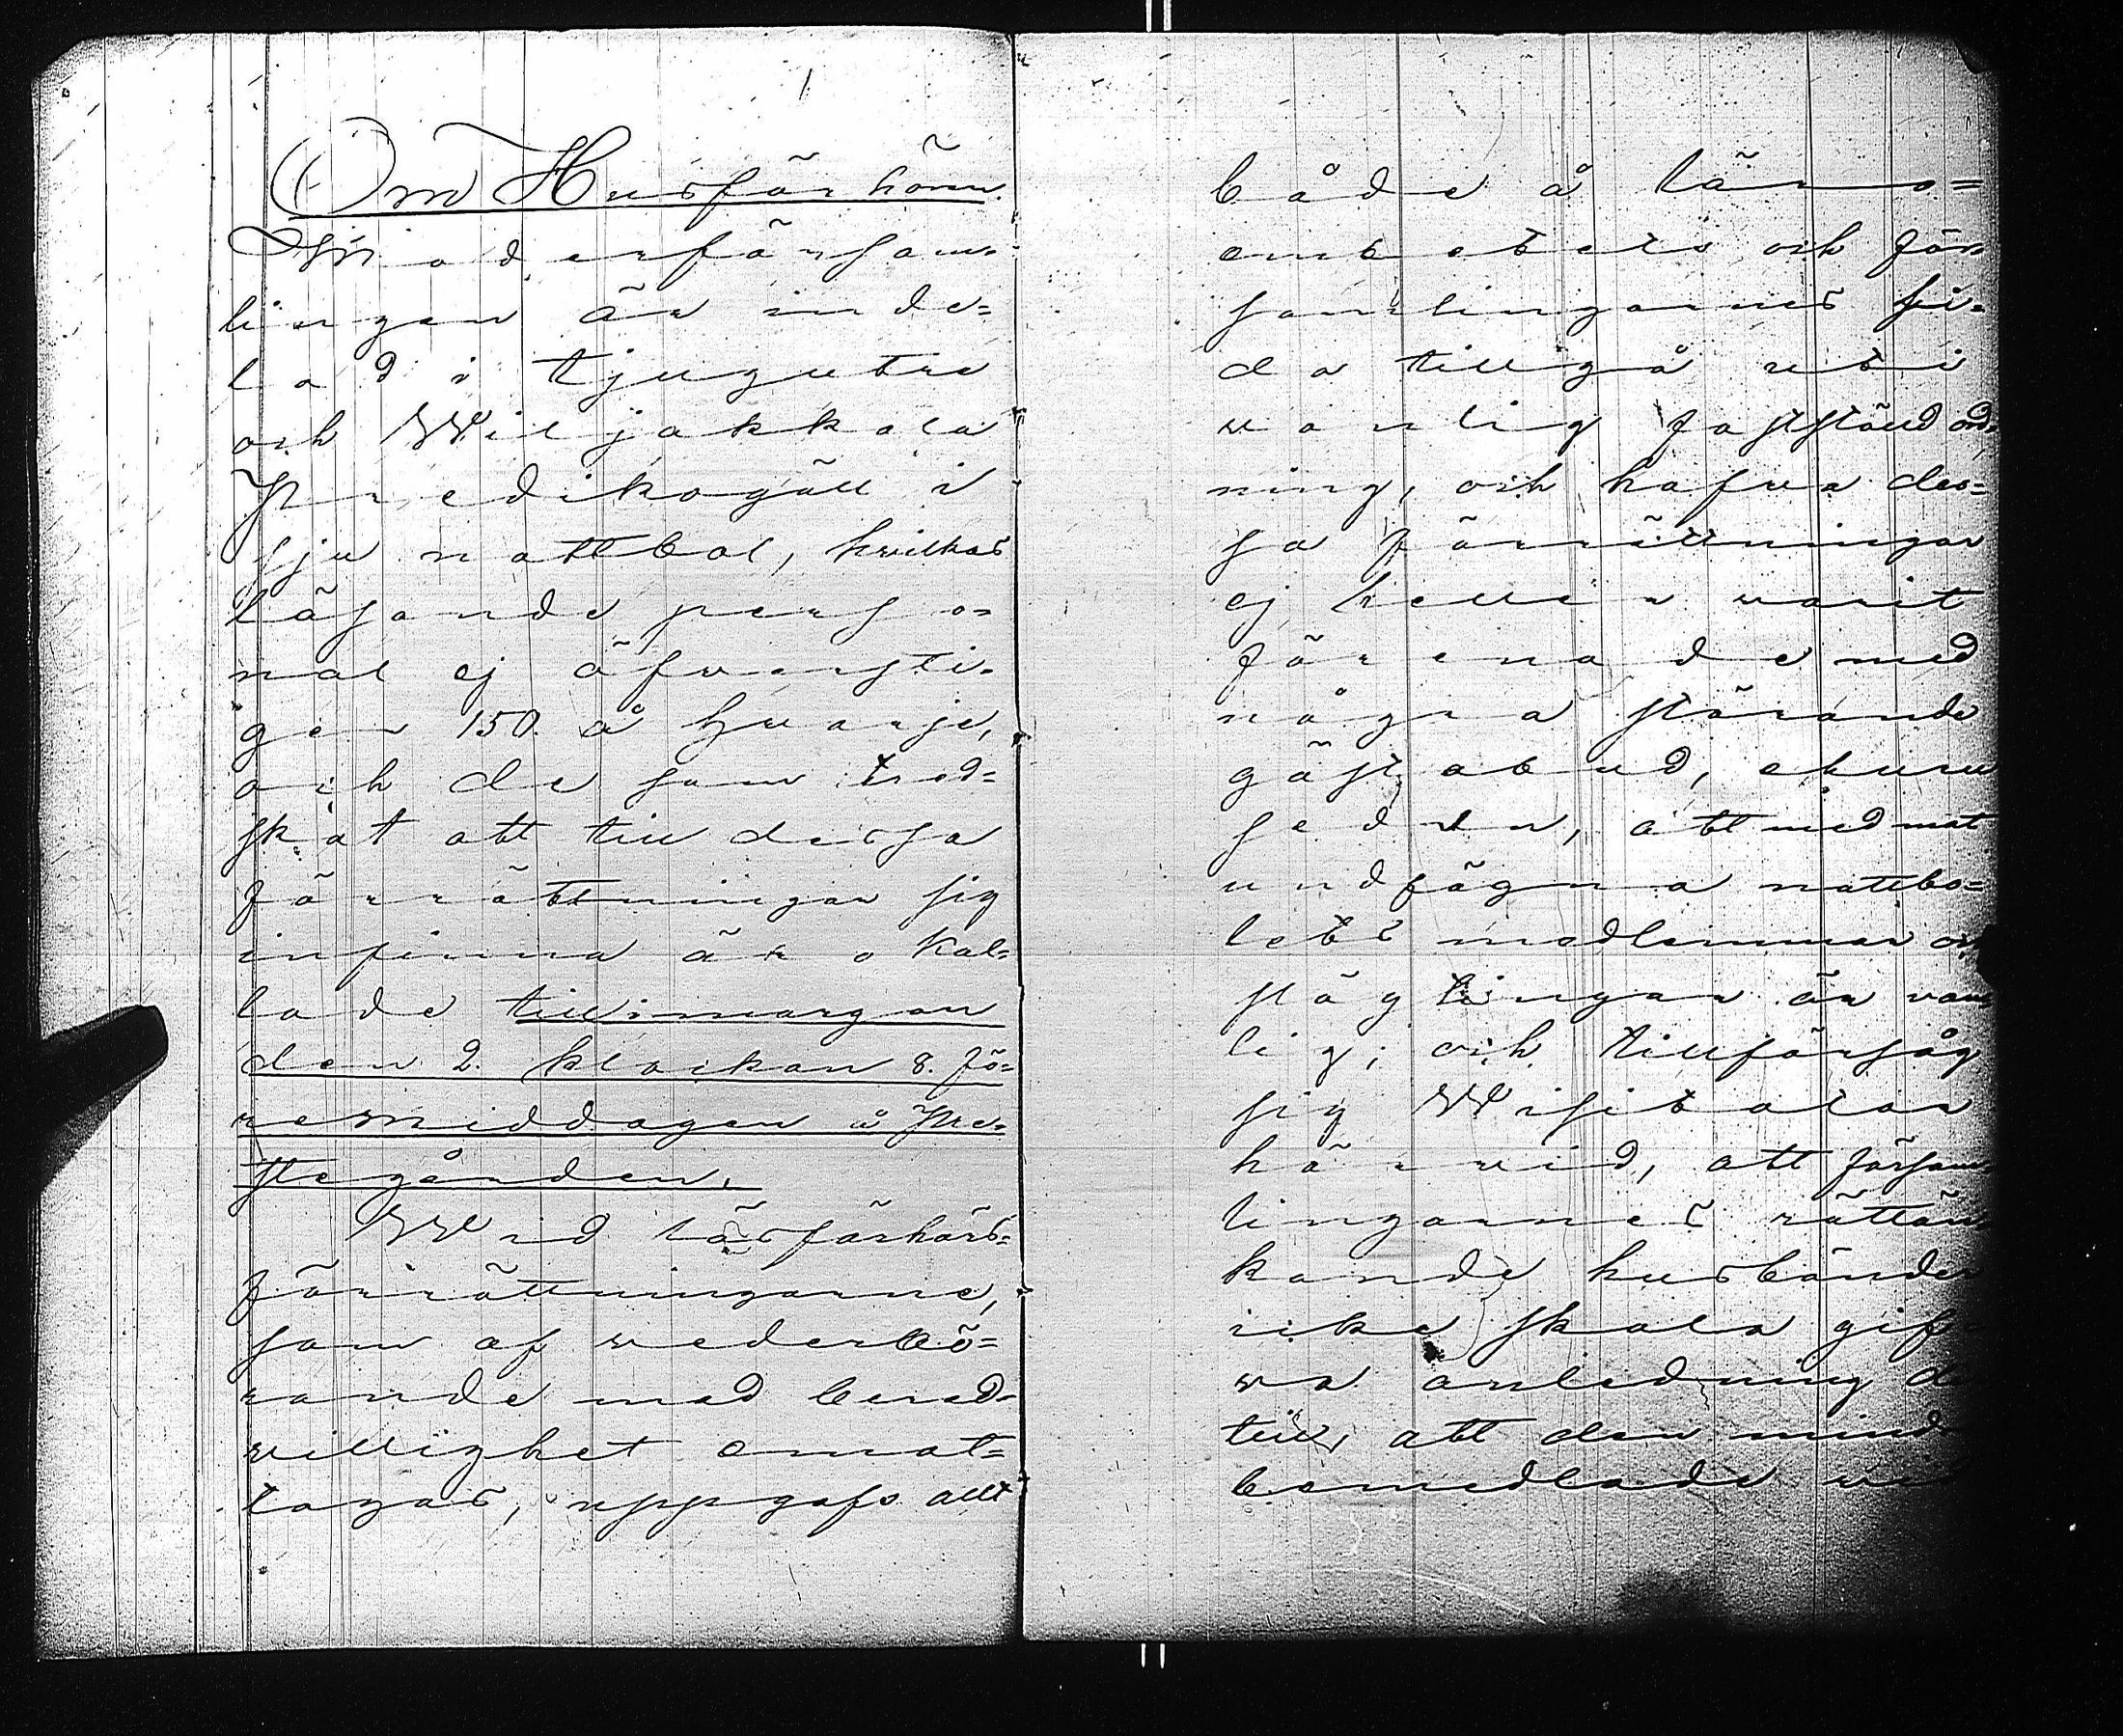 Om Husförhören.
Moderförsam-
lingen är inde-
lad i tjugutre
och Wiljakkala
Predikogäll i
sju nattbol, hvilkas
läsande perso-
nal ej öfversti-
ger 150. å hvarje,
och de som tred-
skat att till dessa
förrättningar sig
infinna äro kal-
lade till i morgon
den 2. klockan 8. fö-
remiddagen å Pre-
stegården.
Wid läsförhörs-
förrättningarne,
som af wederbö-
rande med bered-
villighet emot-
tagas, uppgafs allt
både å läro-
embetets och för
samlingarnes si-
da tillgå uti
vanlig fastställd ord-
ning, och hafva des-
sa förrättningar
ej heller varit
förenade med
några störande
gästabud, ehuru
seden, att med mat
undfägna nattbo-
lets medlemmar och
slägtingar är van
lig; och tillförsåg
sig Wisitator
härvid, att försam
lingarnes rättän
kande husbönder
icke skola gif
va anledning der
till, att den mindre
bemedlade vid